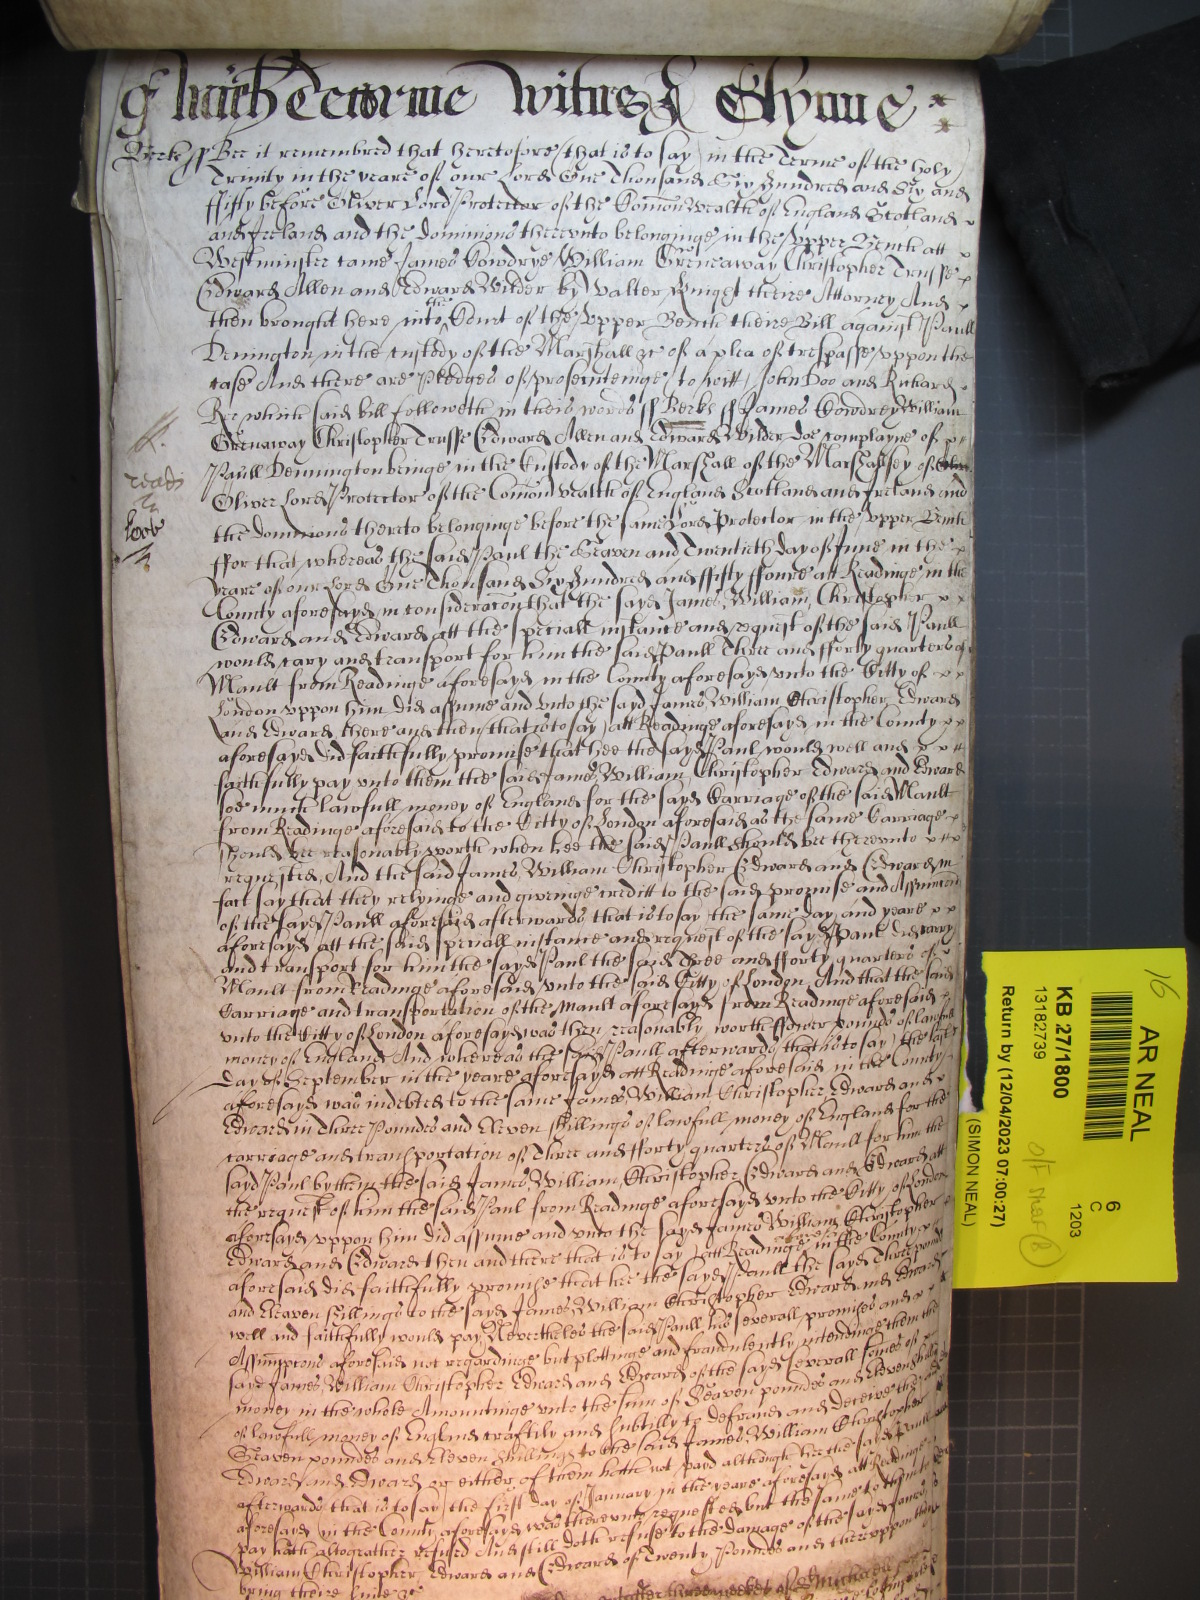 Terme Witnes Glynne
Berks ss Bee it remembred that heretofore (that is to say) in the Terme of the holy
Trinity in the yeare of our Lord One Thousand Six Hundred and Six and
ffifty before Oliver Lord Protector of the Comon Wealth of England Scotland
and Ireland and the dominions therevnto belonginge in the vpper Bench att
Westminster came James Cowdrye William Greneaway Christopher Trusse
Edward Allen and Edward Wilder by Walter Knight theire Attorney And
then brought here into the Court of the vpper Bench theire Bill against Paull
Denington in the custody of the Marshall &c of a plea of trespasse vppon the
case And there are Pledges of prosecuteinge (to witt) John Doo and Richard
Roe which said bill followeth in theis words ss Berks ss James Cowdrey William
Grenaway Christopher Trusse Edward Allen and Edward Wilder doe complayne of
Paull Dennington beinge in the Custody of the Marshall of the Marshallsey of
Oliver Lord Protector of the Comon wealth of England Scotland and Ireland and
the dominions thereto belonginge before the same Lord Protector in the vpper Bench
ffor that whereas the said Paul the Seaven and Twentieth day of June in the
yeare of our Lord One Thousand Six Hundred and ffifty ffoure att Readinge in the
County aforesayd in consideracon that the sayd James William Christopher
Edward and Edward att the speciall instance and request of the said Paull
would cary and transport for him the said Paull Three and fforty quarters of
Mault from Readinge aforesayd in the County aforesayd vnto the Citty of
London vppon him did assume and vnto the sayd James William Christopher Edward
and Edward there and then (that is to say) att Readinge aforesayd in the County
aforesayd did faithfully promise that hee the sayd Paul would well and
faithfully pay vnto them the said James William Christopher Edward and Edward
soe much lawfull money of England for the sayd Carriage of the said Mault
from Readinge aforesaid to the Citty of London aforesaid as the same Carriage
should bee reasonably worth when hee the said Paull should bee therevnto
requested, And the said James William Christopher Edward and Edward in
fact say that they relyinge and giveinge creditt to the said promise and
of the sayd Paull aforesaid afterwards that is to say the same day and yeare
aforesayd att the said speciall instance and request of the sayd Paul did cary
and transport for him the sayd Paul the said Three and fforty quarters of
Mault from Readinge aforesaid vnto the said Citty of London And that the said
Carriage and transportation of the Mault aforesayd from Readinge aforesaid
vnto the Citty of London aforesayd was then reasonably worth ffower pounds of lawfull
money of England And whereas the said Paull afterwards (that is to say) the last
day of September in the yeare aforesayd att Readinge aforesaid in the County
aforesayd was indebted to the same James William Christopher Edward and
Edward in Three Poundes and Eleven shillings of lawfull money of England for the
carriage and transportation of Three and fforty quarters of Mault for him the
sayd Paul by them the said James William Christopher Edward and Edward att
the request of him the said Paul from Readinge aforesayd vnto the Citty of London
aforesayd vppon him did assume and vnto the sayd James William Christopher
Edward and Edward then and there that is to say att Readinge in the County
aforesaid did faithfully promise that hee the sayd Paull the sayd Three pounds
and Eleaven shillings to the sayd James William Christopher Edward and Edward
well and faithfully would pay Neverthelesse the said Paull his severall promises and
Assumptions aforesaid not regardinge but plottinge and fraudulently intendinge them the
sayd James William Christopher Edward and Edward of the sayd severall somes of
money in the whole Amountinge vnto the sum of Seaven poundes and Eleven shillings
of lawfull money of England craftily and subtilly to defraud and deceive the said
Seaven poundes and Eleven shillings to the said James William Christopher
Edward and Edward or either of them hath not payd although hee the said Paull
afterwards that is to say the first day of January in the yeare aforesayd att Readinge
aforesayd in the County aforesayd was therevnto requested but the same to them to
pay hath altogeather refused And still doth refuse to the damage of the sayd James
William Christopher Edward and Edward of Twenty Pounds and therevppon they
bring theire suite &c
AR NEAL
KB 27/1800
13182739
Return by (12/04/2023 07:00:27)
(SIMON NEAL)
6
C
1203
16